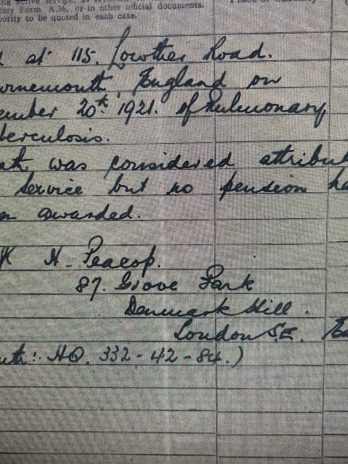 ing active service, as re
rmy Form A.36, or in other official documents.
hority to be quoted in each case.
at 115. Lowther Road.
urnemouth, England on
ember 20th 1921. of Pulmonary
berculosis.
ath was considered attribut
Service but no pension ha
en awarded.
N. Peacop.
87. Grove Park
Denmark Hill.
London S.E.
uth: HQ. 332-42-84.)